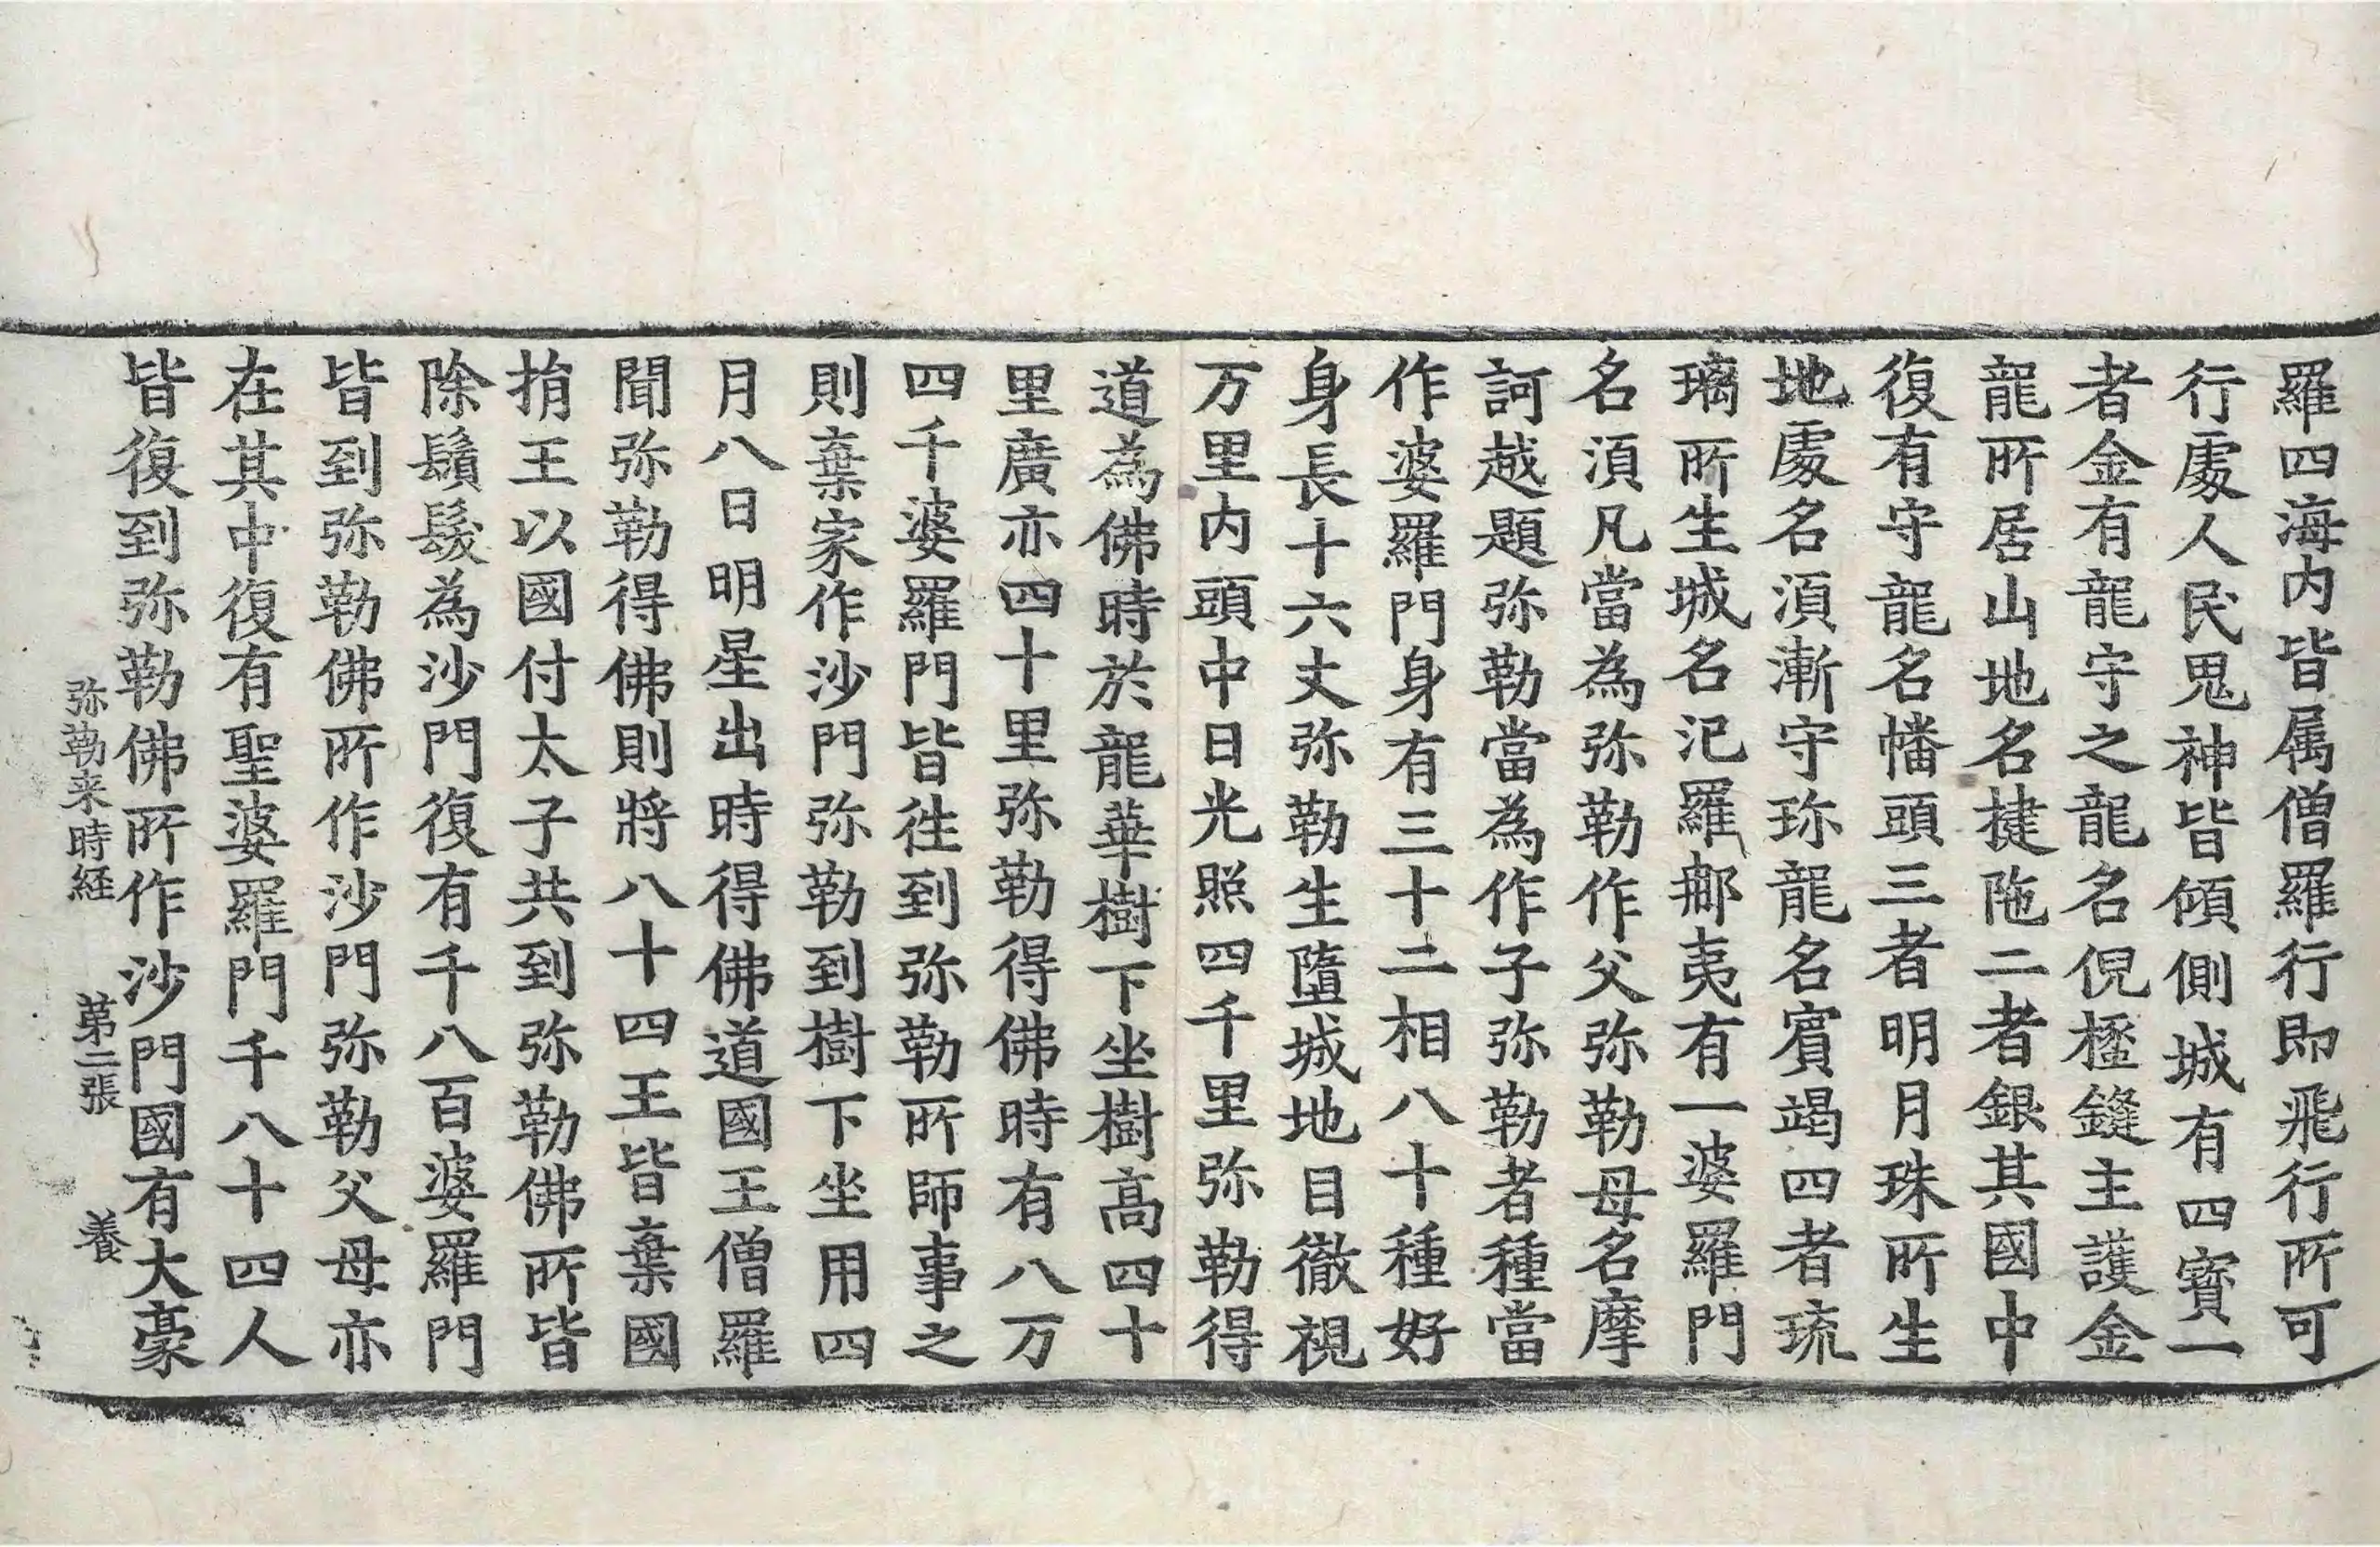 羅四海内皆属僧羅行即飛行所可
行處人民鬼神皆傾側城有四寳一
者金有龍守之龍名倪𣚦鏠主護金
龍所居山地名揵陁二者銀其國中
復有守龍名幡頭三者明月珠所生
地處名湏漸守珎龍名賔竭四者琉
璃所生城名氾羅𨚗夷有一婆羅門
名湏凡當為弥勒作父弥勒母名摩
訶越題弥勒當為作子弥勒者種當
作婆羅門身有三十二相八十種好
身長十六丈弥勒生墮城地目徹視
万里内頭中日光照四千里弥勒得
道為佛時於龍華樹下坐樹高四十
里廣亦四十里弥勒得佛時有八万
四千婆羅門皆徃到弥勒所師事之
則棄家作沙門弥勒到樹下坐用四
月八日明星出時得佛道國王僧羅
聞弥勒得佛則將八十四王皆棄國
捐王以國付太子共到弥勒佛所皆
除鬚髮為沙門復有千八百婆羅門
皆到弥勒佛所作沙門弥勒父母亦
在其中復有聖婆羅門千八十四人
皆復到弥勒佛所作沙門國有大豪
弥勒来時経 第二張 養